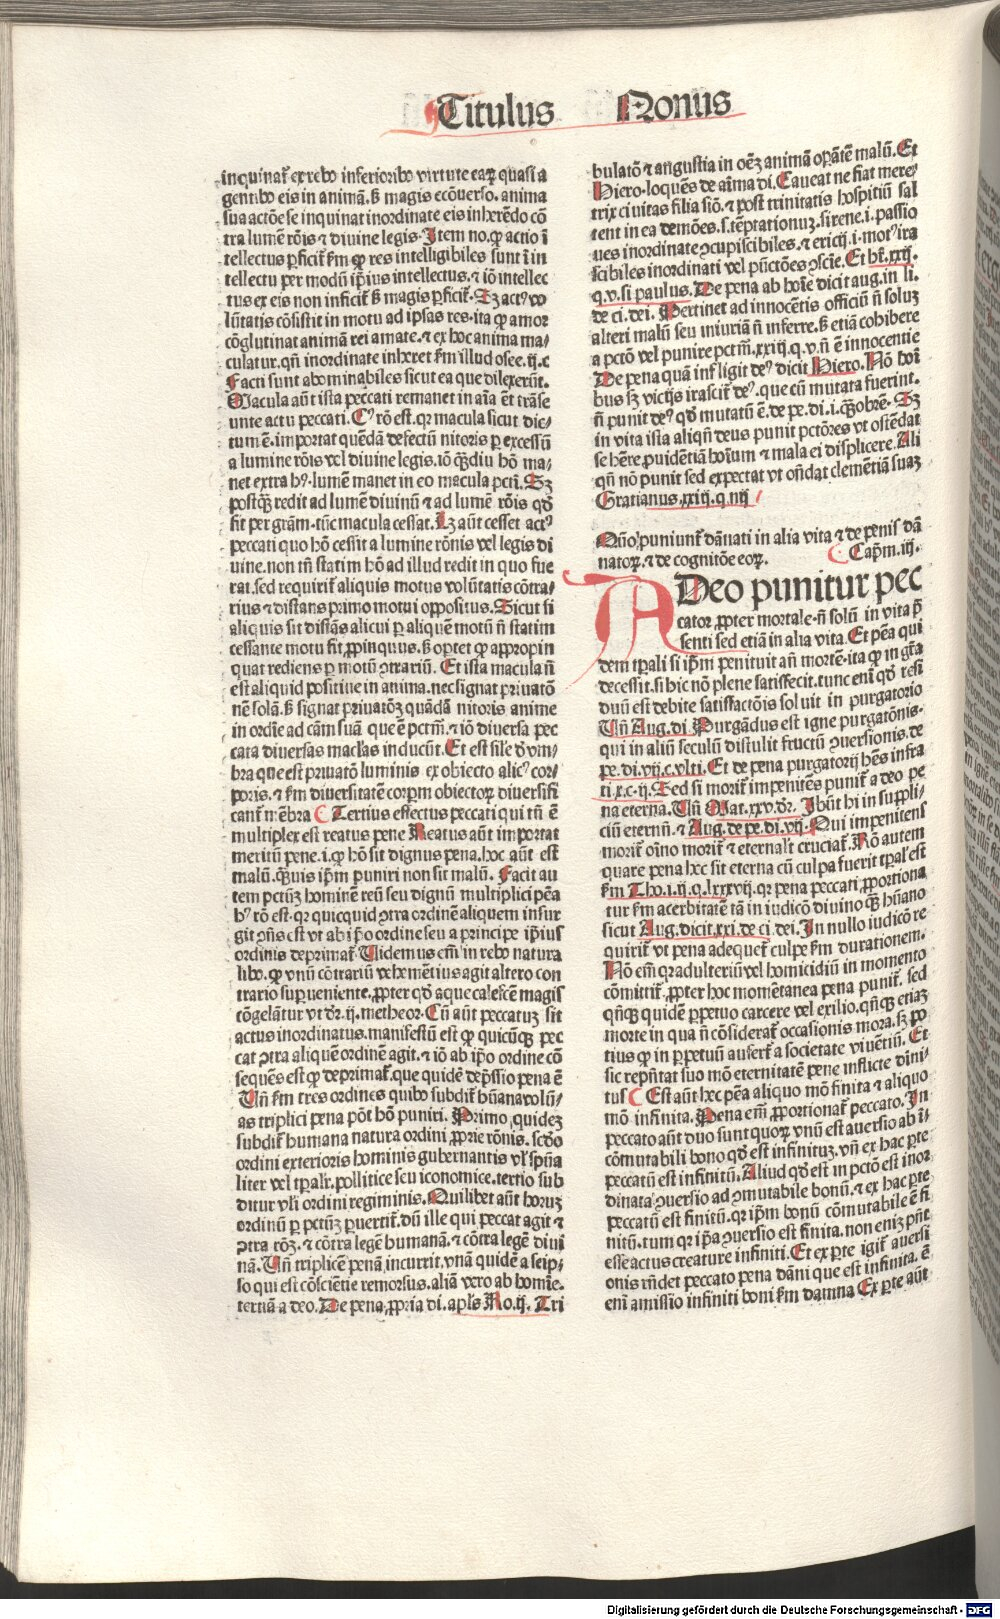 Titulus Nonus
inquinat̄ ex rebꝰ inferioribꝰ virtute earꝝ quasi a
gentibꝰ eis in animā. sꝫ magis ecōuerso. anima
sua actōe se inquinat inordinate eis inherēdo cō
tra lumē rōis ⁊ diuine legis. Item no. ꝙ actio ī
tellectus ꝑficit̄ s̄m ꝙ res intelligibiles sunt ī in
tellectu per modū ip̄ius intellectus. ⁊ iō intellec
tus ex eis non inficit̄ sꝫ magis ꝑficit̄. Sꝫ actꝰ vo
lūtatis cōsistit in motu ad ipsas res. ita ꝙ amor
cōglutinat animā rei amate. ⁊ ex hoc anima ma⸗
culatur. qn̄ inordinate inheret s̄m illud osee. ij. c
Facti sunt abominabiles sicut ea que dilexerūt.
Macula aūt ista peccati remanet in aīa ēt trāse
unte actu peccati. Cꝰ rō est. qꝛ macula sicut dic⸗
tum ē. importat quēdā defectū nitoris ꝑ excessū
a lumine rōis vel diuine legis. iō qꝫdiu hō ma⸗
net extra hꝰ lumē manet in eo macula pctī. Sꝫ
postqꝫ redit ad lumē diuinū ⁊ ad lumē rōis qd̄
fit per grām. tūc macula cessat. Lꝫ aūt cesset actꝰ
peccati quo hō cessit a lumine rōnis vel legis di
uine. non tn̄ statim hō ad illud redit in quo fue
rat. sed requirit̄ aliquis motus volūtatis cōtra⸗
rius ⁊ distans primo motui oppositus. Sicut si
aliquis sit distās alicui ꝑ aliquē motū n̄ statim
cessante motu fit ꝓpinquus. sꝫ optet ꝙ appropin
quat rediens ꝑ motū ꝯtrariū. Et ista macula n̄
est aliquid positiue in anima. nec signat priuatō
nē solā. sꝫ signat priuatōꝫ quādā nitoris anime
in ordīe ad cām suā que ē pctm̄. ⁊ iō diuersa pec
cata diuersas maclas inducūt. Et est sile d̄ vm⸗
bra que est priuatō luminis ex obiecto alicꝰ cor⸗
poris. ⁊ s̄m diuersitatē corpꝝ obiectorꝝ diuersifi
cant̄ mēbra ¶ Tertius effectus peccati qui tn̄ ē
multiplex est reatus pene Reatus aūt importat
meritū pene. i. ꝙ hō sit dignus pena. hoc aūt est
malū. qꝫuis ip̄m puniri non sit malū. Facit au
tem pctūꝫ hominē reū seu dignū multiplici pēa
hꝰ rō est. qꝛ quicquid ꝯtra ordinē aliquem insur
git ꝯn̄s est vt ab ip̄o ordine seu a principe ip̄ius
ordinis deprimat̄. Uidemus em̄ in rebꝰ natura
libꝰ. ꝙ vnū cōtrariū vehemētius agit altero con
trario suꝑueniente. ꝓpter qd̄ aque calefcē magis
cōgelātur vt dr̄. ij. metheor. Cū aūt peccatuꝫ sit
actus inordinatus. manifestū est ꝙ quicūqꝫ pec
cat ꝯtra aliquem ordinē agit. ⁊ iō ab ip̄o ordine cō
sequēs est ꝙ deprimat̄. que quidē dep̄ssio pena ē
Un̄ s̄m tres ordines quibꝰ subdit̄ hūana volū⸗
as triplici pena pōt hō puniri. Primo quideꝫ
subdit̄ humana natura ordini ꝓprie rōnis. scd̄o
ordini exterioris hominis gubernantis vl̄ spūa
liter vel tꝑalr̄. pollitice seu iconomice. tertio sub
ditur vl̄i ordini regiminis. Quilibet aūt horuꝫ
ordinū ꝑ pctūꝫ ꝑuertit̄. dū ille qui peccat agit ⁊
ꝯtra rōꝫ. ⁊ cōtra legē humanā. ⁊ cōtra legē diui
nā. Un̄ triplicē penā incurrit. vnā quidē a seip⸗
so qui est cōsciētie remorsus. aliā vero ab homīe.
tertiā a deo. De pena ꝓpria di. apl̄s Ro. ij. Tri
bulatō ⁊ angustia in oēꝫ animā oꝑātē malū. Et
Hiero. loquēs de aīma di. Caueat ne fiat mere⸗
trix ciuitas filia siō. ⁊ post trinitatis hospitiū sal
tent in ea demōes. s. tēptationuꝫ. sirene. i. passio
nes inordinate ꝯcupiscibiles. ⁊ ericij. i. motꝰ ira
scibiles inordinati vel pūctōes ꝯscīe. Et hr̄. xxij.
q. v. si paulus. De pena ab hoīe dicit aug. in li.
de ci. dei. Pertinet ad innocētis officiū n̄ soluꝫ
alteri malū seu iniuriā n̄ inferre. sꝫ etiā cohibere
a pctō vel punire pctm̄. xxiij. q. v. n̄ ē innocentie
De pena quā infligit deꝰ dicit Hiero. Nō boī
bus sꝫ vicijs irascit̄ deꝰ. que cū mutata fuerint.
n̄ punit deꝰ qd̄ mutatū ē. de pe. di. i. qꝫobrē. Sꝫ
in vita ista aliqn̄ deus punit pctōres vt ostēdat
se hēre ꝓuidētiā hoīum ⁊ mala ei displicere. Ali
qn̄ nō punit sed expectat vt on̄dat clemētiā suaꝫ
Gratianus. xxiij. q. iiij
Quō puniunt̄ dānati in alia vita ⁊ de penis dā
natorꝝ. ⁊ de cognitōe eorꝝ. ¶ Capm̄. iij.
A Deo punitur pec
cator ꝓpter mortale. n̄ solū in vita p̄
senti sed etiā in alia vita. Et pēa qui
dem tꝑali si ip̄m penituit an̄ mortē. ita ꝙ in gr̄a
decessit. si hic nō plene satisfecit. tunc enī qd̄ resi
duū est debite satisfactōis soluit in purgatorio
Un̄ Aug. di. Purgādus est igne purgatōnis.
qui in aliū seculū distulit fructū ꝯuersionis. de
pe. di. vij. c. vlti. Et de pena purgatorij hēs infra
ti. x. c. ij. Sed si morit̄ impenitēs punit̄ a deo pe
na eterna. Un̄ Mat. xxv. dr̄. Ibūt hi in suppli⸗
ciū eternū. ⁊ Aug. de pe. di. vij. Qui impenitens
morit̄ oīno morit̄ ⁊ eternalr̄ cruciat̄. Rō autem
quare pena hec sit eterna cū culpa fuerit tꝑal̄ est
s̄m Tho. i. ij. q. lxxxvij. qꝛ pena peccati ꝓportiona
tur s̄m acerbitatē tā in iudicō diuino qꝫ hūano
sicut Aug. dicit. xxi. de ci. dei. In nullo iudicō re
quirit̄ vt pena adequet̄ culpe s̄m durationem.
Nō em̄ qꝛ adulteriū vel homicidiū in momento
cōmittit̄. ꝓpter hoc momētanea pena punit̄. sed
qn̄qꝫ quidē ꝑpetuo carcere vel exilio. qn̄qꝫ etiaꝫ
morte in qua n̄ cōsiderat̄ occasionis mora. sꝫ po
tius ꝙ in ꝑpetuū aufert̄ a societate viuētiū. Et
sic rep̄ntat suo mō eternitatē pene inflicte diui⸗
tus ¶ Est aūt hec pēa aliquo mō finita ⁊ aliquo
mō infinita. Pena em̄ ꝓportionat̄ peccato. In
peccato aūt duo sunt quorꝝ vnū est auersio ab ī⸗
cōmutabili bono qd̄ est infinituꝫ. vn̄ ex hac ꝑte
peccatū est infinitū. Aliud qd̄ est in pctō est inor
dinata ꝯuersio ad ꝯmutabile bonū. ⁊ ex hac ꝑte
peccatū est finitū. qꝛ ip̄m bonū cōmutabile ē fi
nitū. tum qꝛ ip̄a ꝯuersio est finita. non eniꝫ pn̄t
esse actus creature infiniti. Et ex ꝑte igit̄ auersi
onis rn̄det peccato pena dāni que est infinita. ē
enī amissio infiniti boni s̄m damna Ex ꝑte aūt
Digitalisierung gefördert durch die Deutsche Forschungsgemeinschaft - DFG